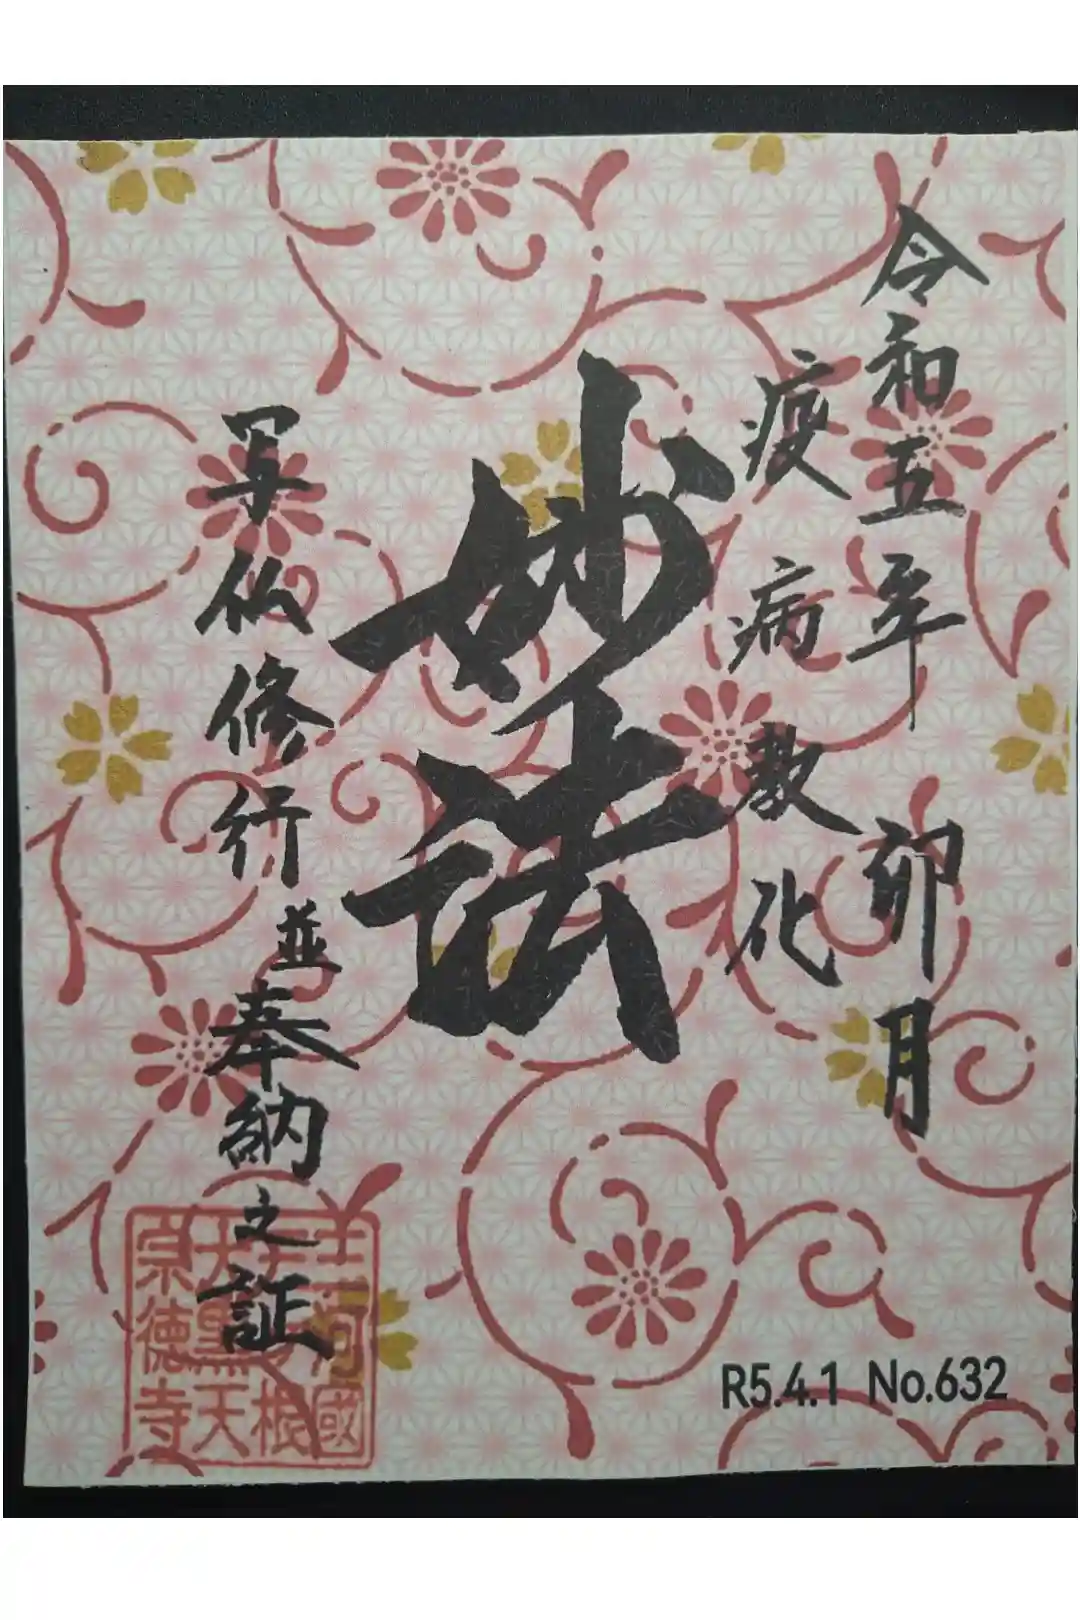 令和五年 卯月
疫病教化
妙法
写仏修行並奉納之証
河國
根
大黒天
宗徳寺
R5.4.1 No.632